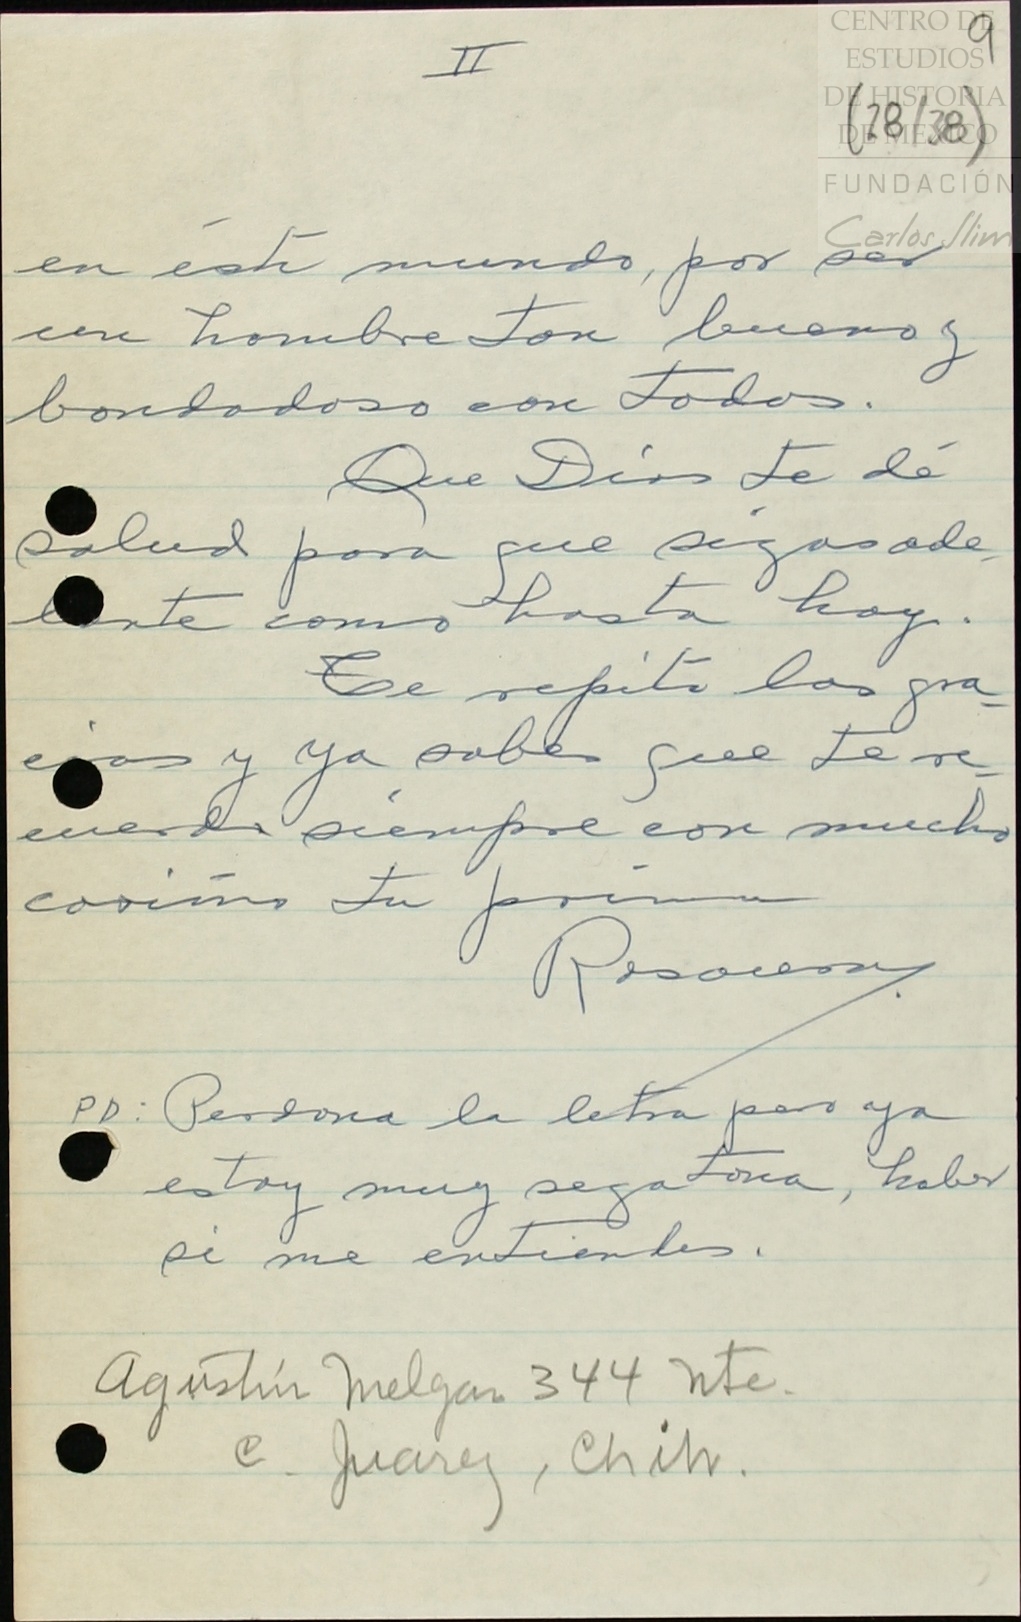 CENTRO DE
ESTUDIOS
DE HISTORIA
DE MÉXICO
FUNDACIÓN
Carlos Slim
9
(28/38)
II
en éste mundo, por ser
un hombre tan bueno y
bondadoso con todos.
Que Dios te dé
salud para que sigas ade-
lante como hasta hoy.
Te repito las gra-
cias y ya sabes que te re-
cuerda siempre con mucho
cariño tu prima
Rosaura.
PD: Perdona la letra pero ya
estoy muy segatona, haber
si me entiendes.
Agustín Melgar 344 Nte.
C. Juarez, Chih.